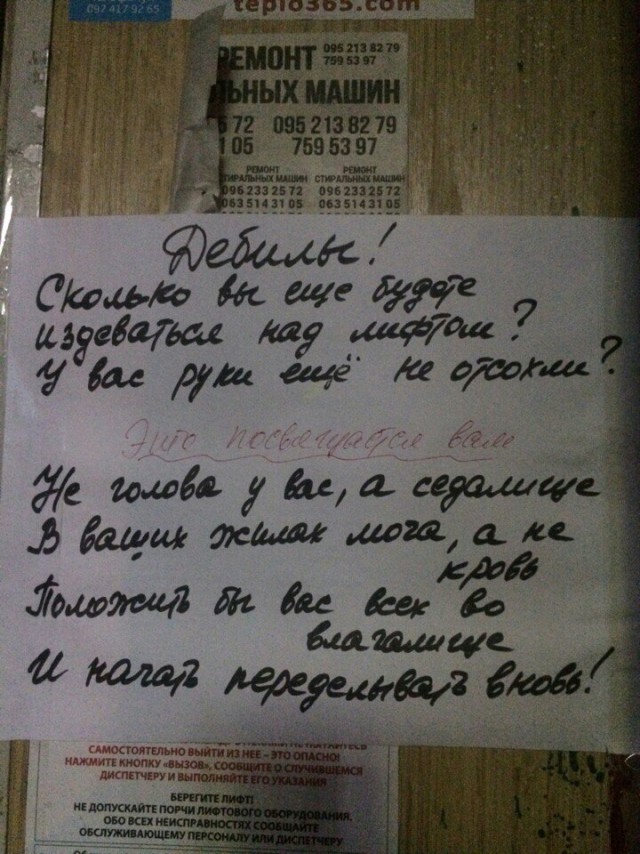 097 417 92 65
teplo365.com
РЕМОНТ 095 213 82 79
759 53 97
ЬНЫХ МАШИН
5 72 095 213 82 79
1 05 759 53 97
РЕМОНТ РЕМОНТ
СТИРАЛЬНЫХ МАШИН СТИРАЛЬНЫХ МАШИН
096 233 25 72 096 233 25 72
063 514 31 05 063 514 31 05
Дебилы!
Сколько вы еще будете
издеваться над лифтом?
У вас руки ещё не отсохли?
Это посвящается вам
Не голова у вас, а седалище
В ваших жилах моча, а не
кровь
Положить бы вас всех во
влагалище
И начать переделывать вновь!
САМОСТОЯТЕЛЬНО ВЫЙТИ ИЗ НЕЕ – ЭТО ОПАСНО!
НАЖМИТЕ КНОПКУ «ВЫЗОВ», СООБЩИТЕ О СЛУЧИВШЕМСЯ
ДИСПЕТЧЕРУ И ВЫПОЛНЯЙТЕ ЕГО УКАЗАНИЯ
БЕРЕГИТЕ ЛИФТ!
НЕ ДОПУСКАЙТЕ ПОРЧИ ЛИФТОВОГО ОБОРУДОВАНИЯ.
ОБО ВСЕХ НЕИСПРАВНОСТЯХ СООБЩАЙТЕ
ОБСЛУЖИВАЮЩЕМУ ПЕРСОНАЛУ ИЛИ ДИСПЕТЧЕРУ